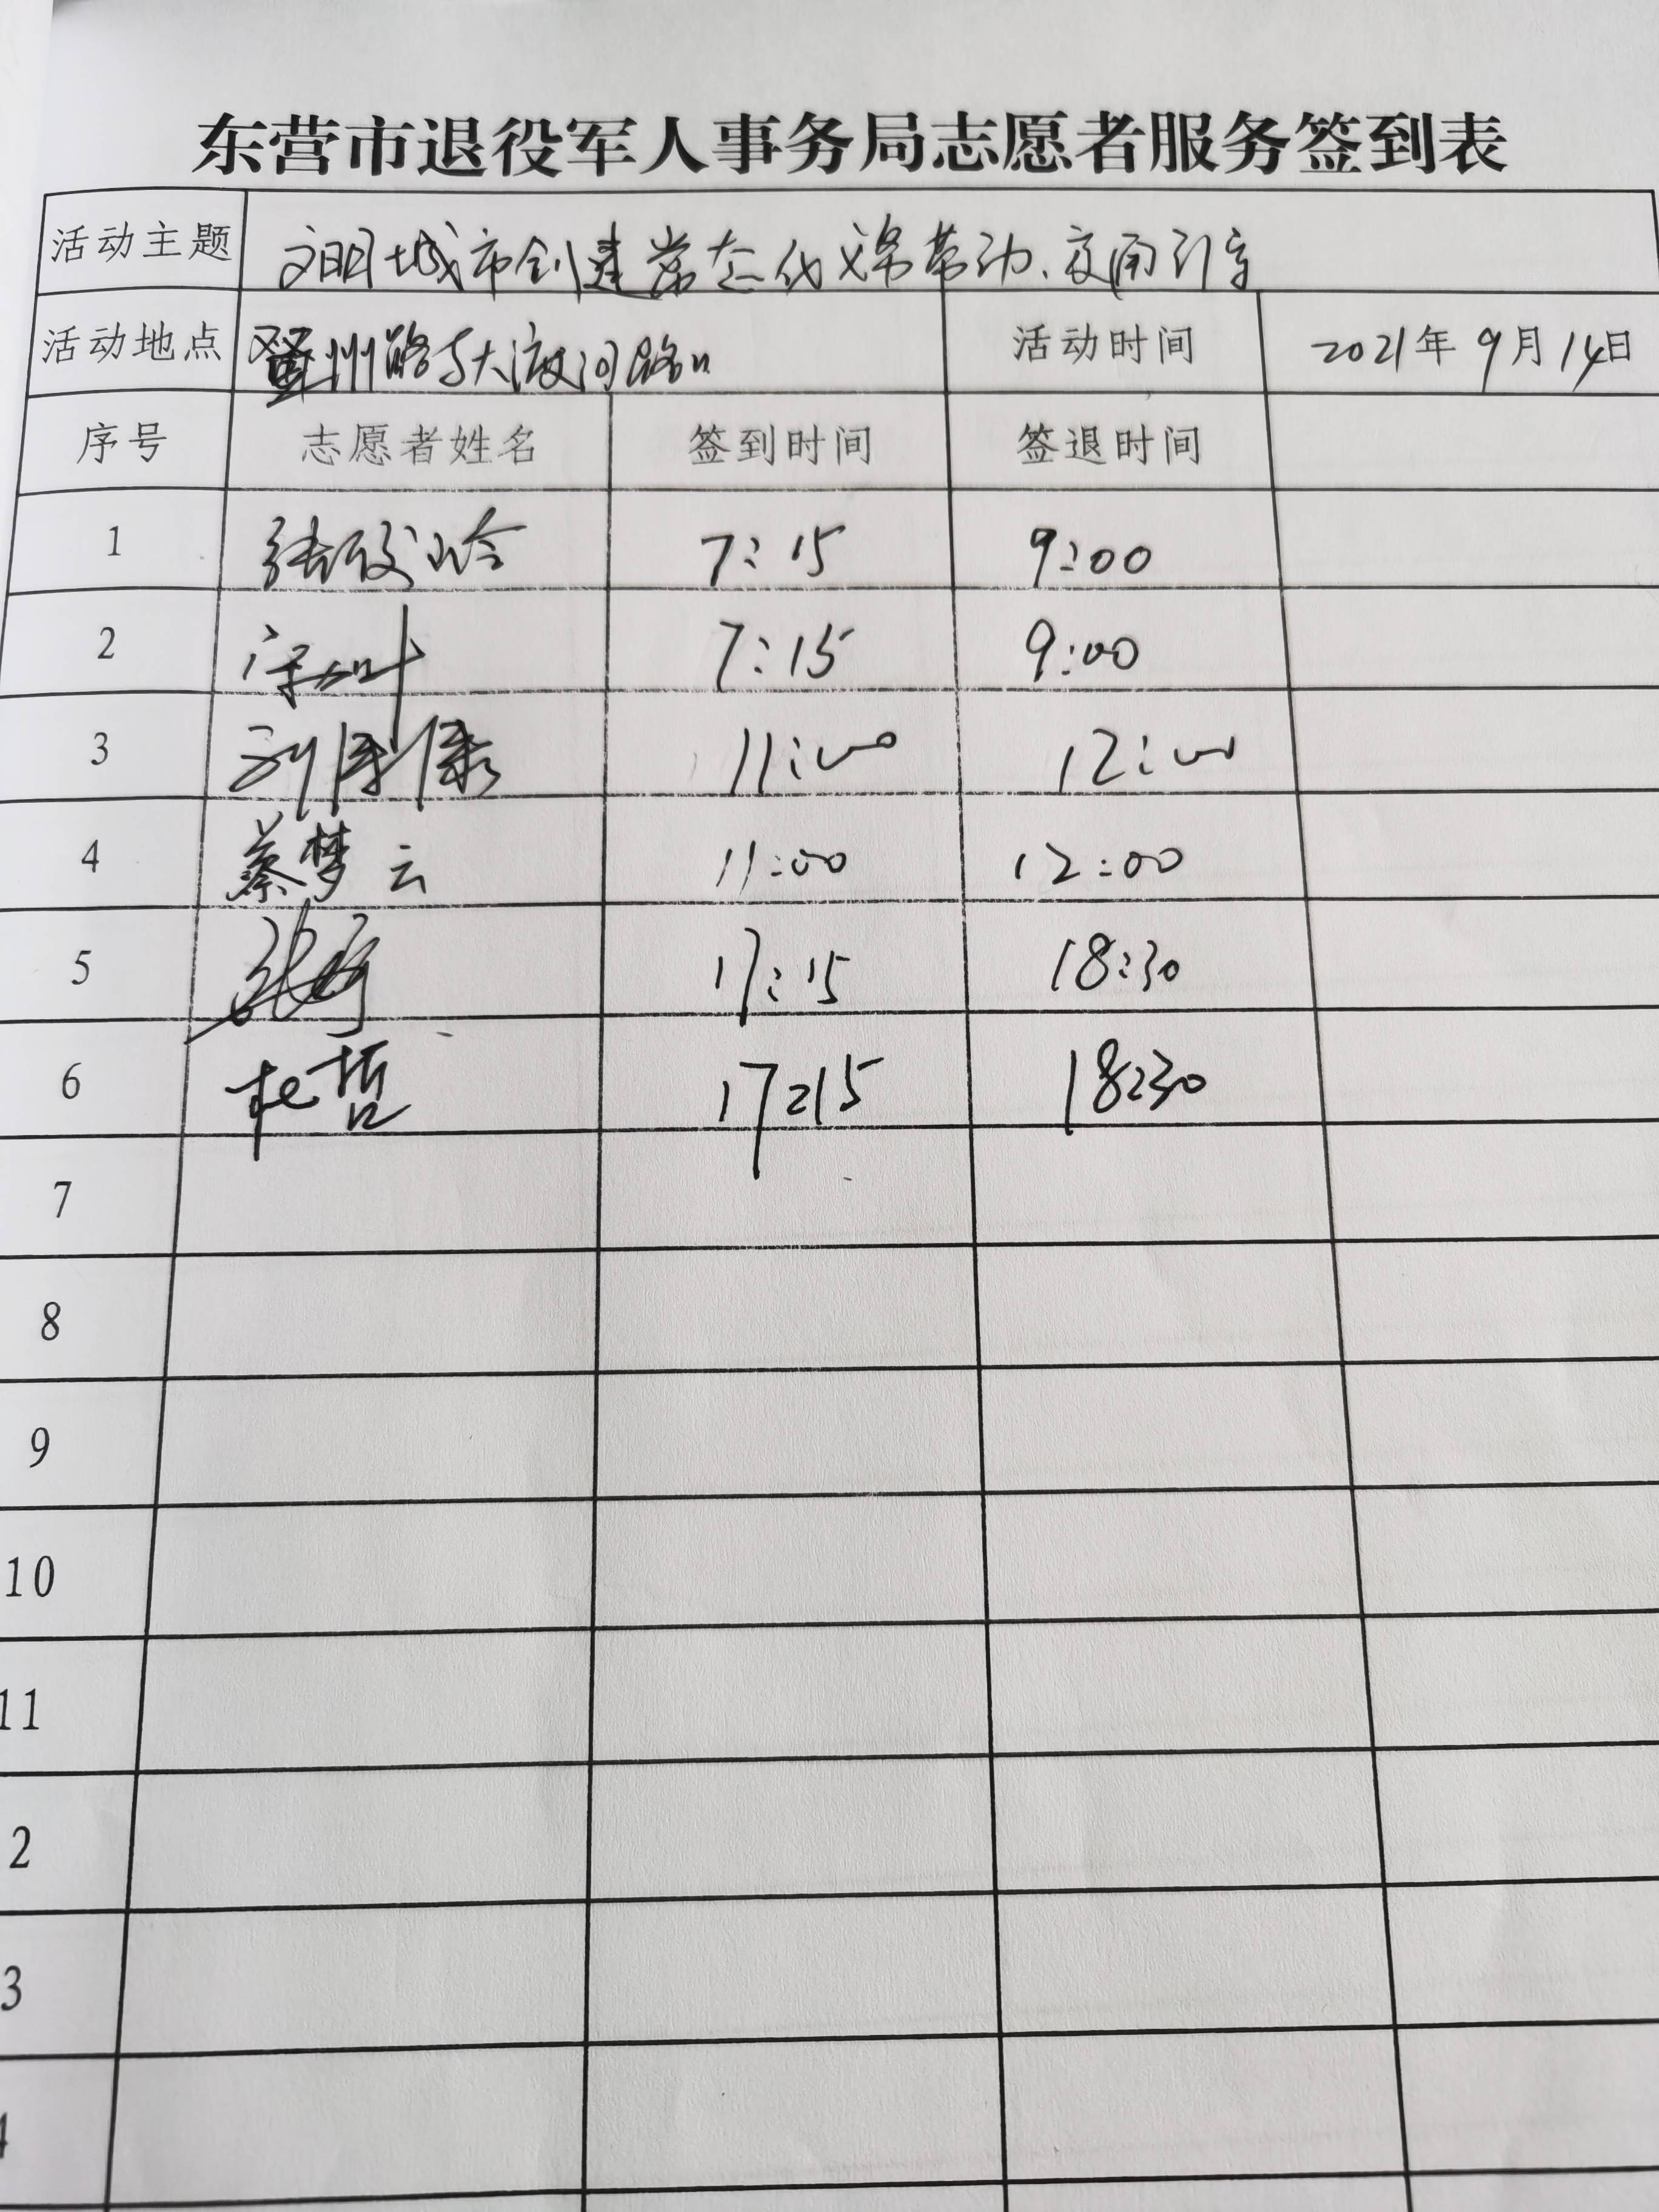 东营市退役军人事务局志愿者服务签到表
活动主题 文明城市创建常态化 带动、交通引导
活动地点 州路与大渡河路口 活动时间 2021年9月14日
序号 志愿者姓名 签到时间 签退时间
1 张 玲 7:15 9:00
2 7:15 9:00
3 刘 11:00 12:00
4 蔡梦云 11:00 12:00
5 17:15 18:30
6 杜哲 17:15 18:30
7
8
9
10
11
2
3
4